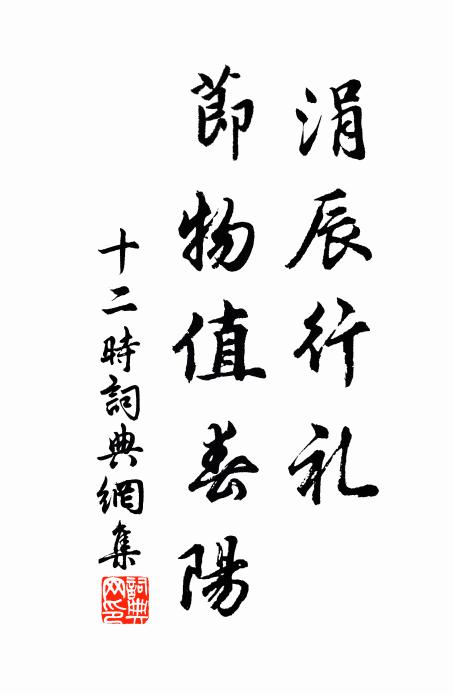 涓辰行礼
莭物值春陽
十二時詞典網集
詞典网印